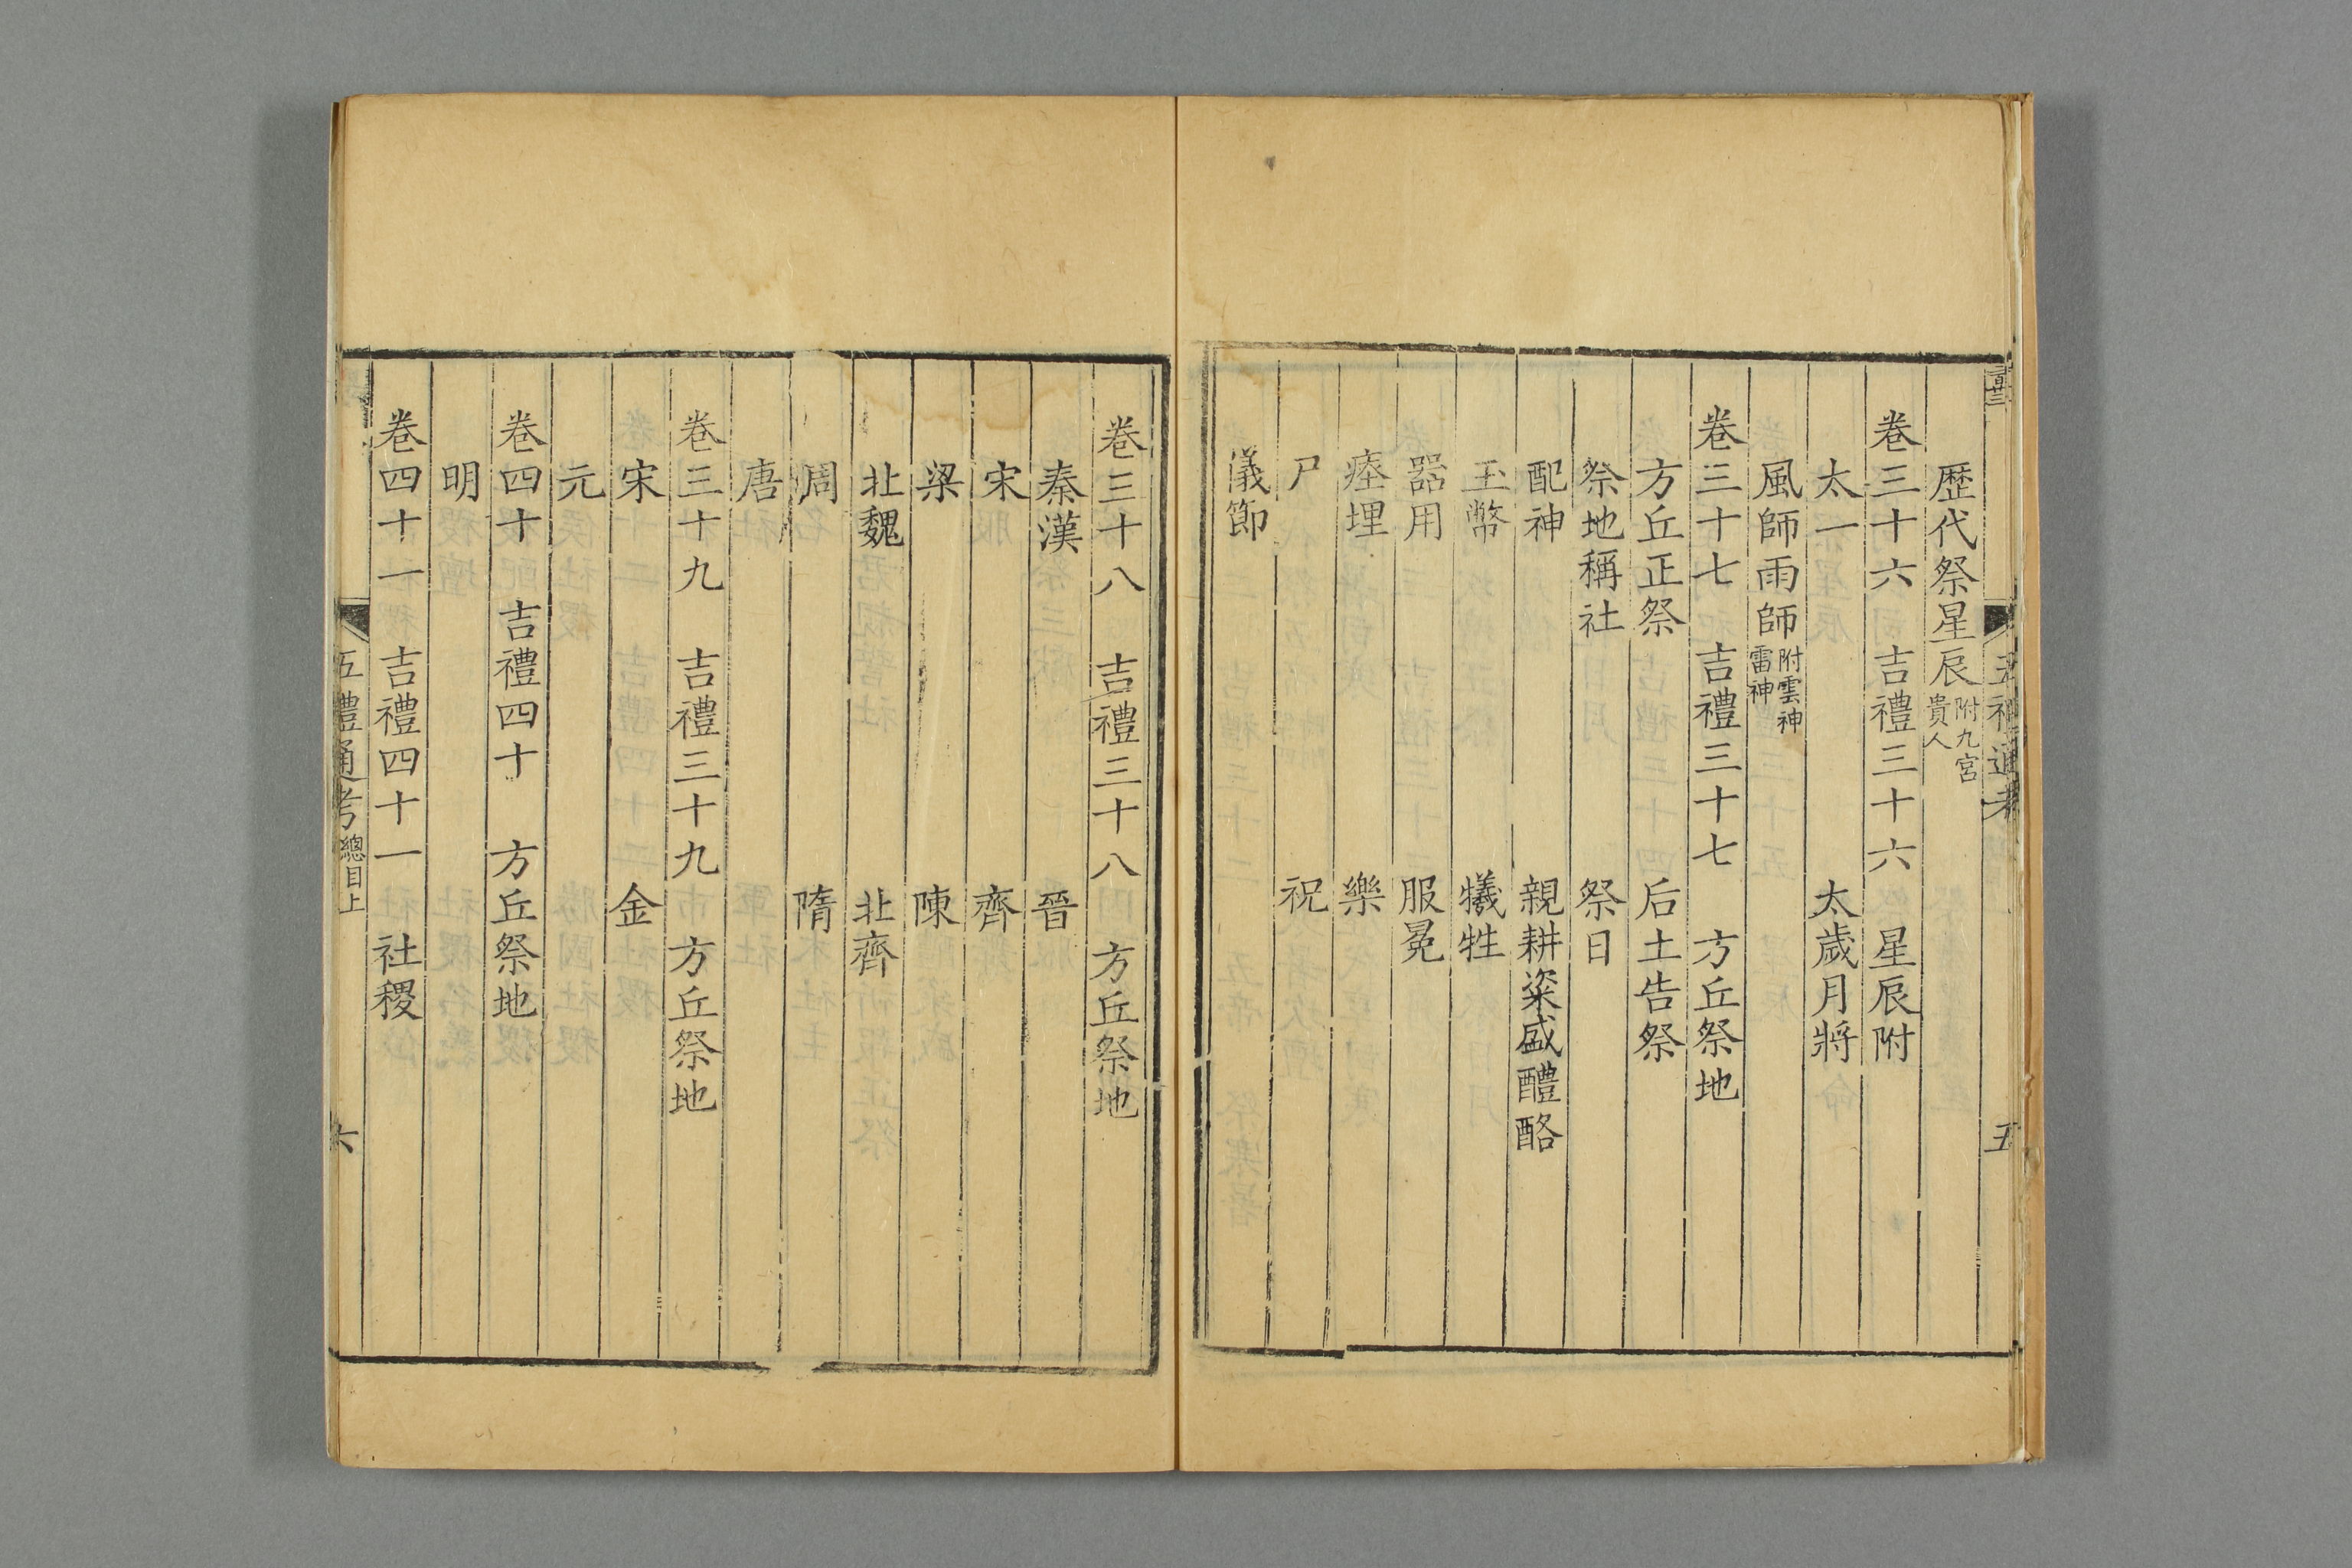 五禮通考
五
歷代祭星辰附九宮貴人
卷三十六 吉禮三十六 星辰附
太一 太歲月將
風師雨師附雲神雷神
卷三十七 吉禮三十七 方丘祭地
方丘正祭 后土告祭
祭地稱社 祭日
配神 親耕粢盛醴酪
玉幣 犧牲
器用 服冕
瘞埋 樂
尸 祝
儀節
卷三十八 吉禮三十八 方丘祭地
秦漢 晉
宋 齊
梁 陳
北魏 北齊
周 隋
唐
卷三十九 吉禮三十九 方丘祭地
宋 金
元
卷四十 吉禮四十 方丘祭地
明
卷四十一 吉禮四十一 社稷
五禮通考 總目上 六